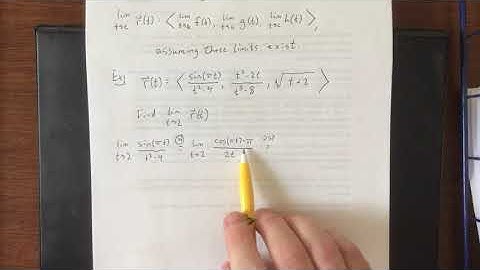 lim t→c r⃗(t) = ⟨ lim t→c f(t), lim t→c g(t), lim t→c h(t) ⟩,
assuming these limits exist.
Ex) r⃗(t) = ⟨ sin(πt)/(t²-4), (t²-2t)/(t³-8), √(t+2) ⟩
Find lim t→2 r⃗(t)
lim t→2 sin(πt)/(t²-4) = lim t→2 cos(πt)·π/2t